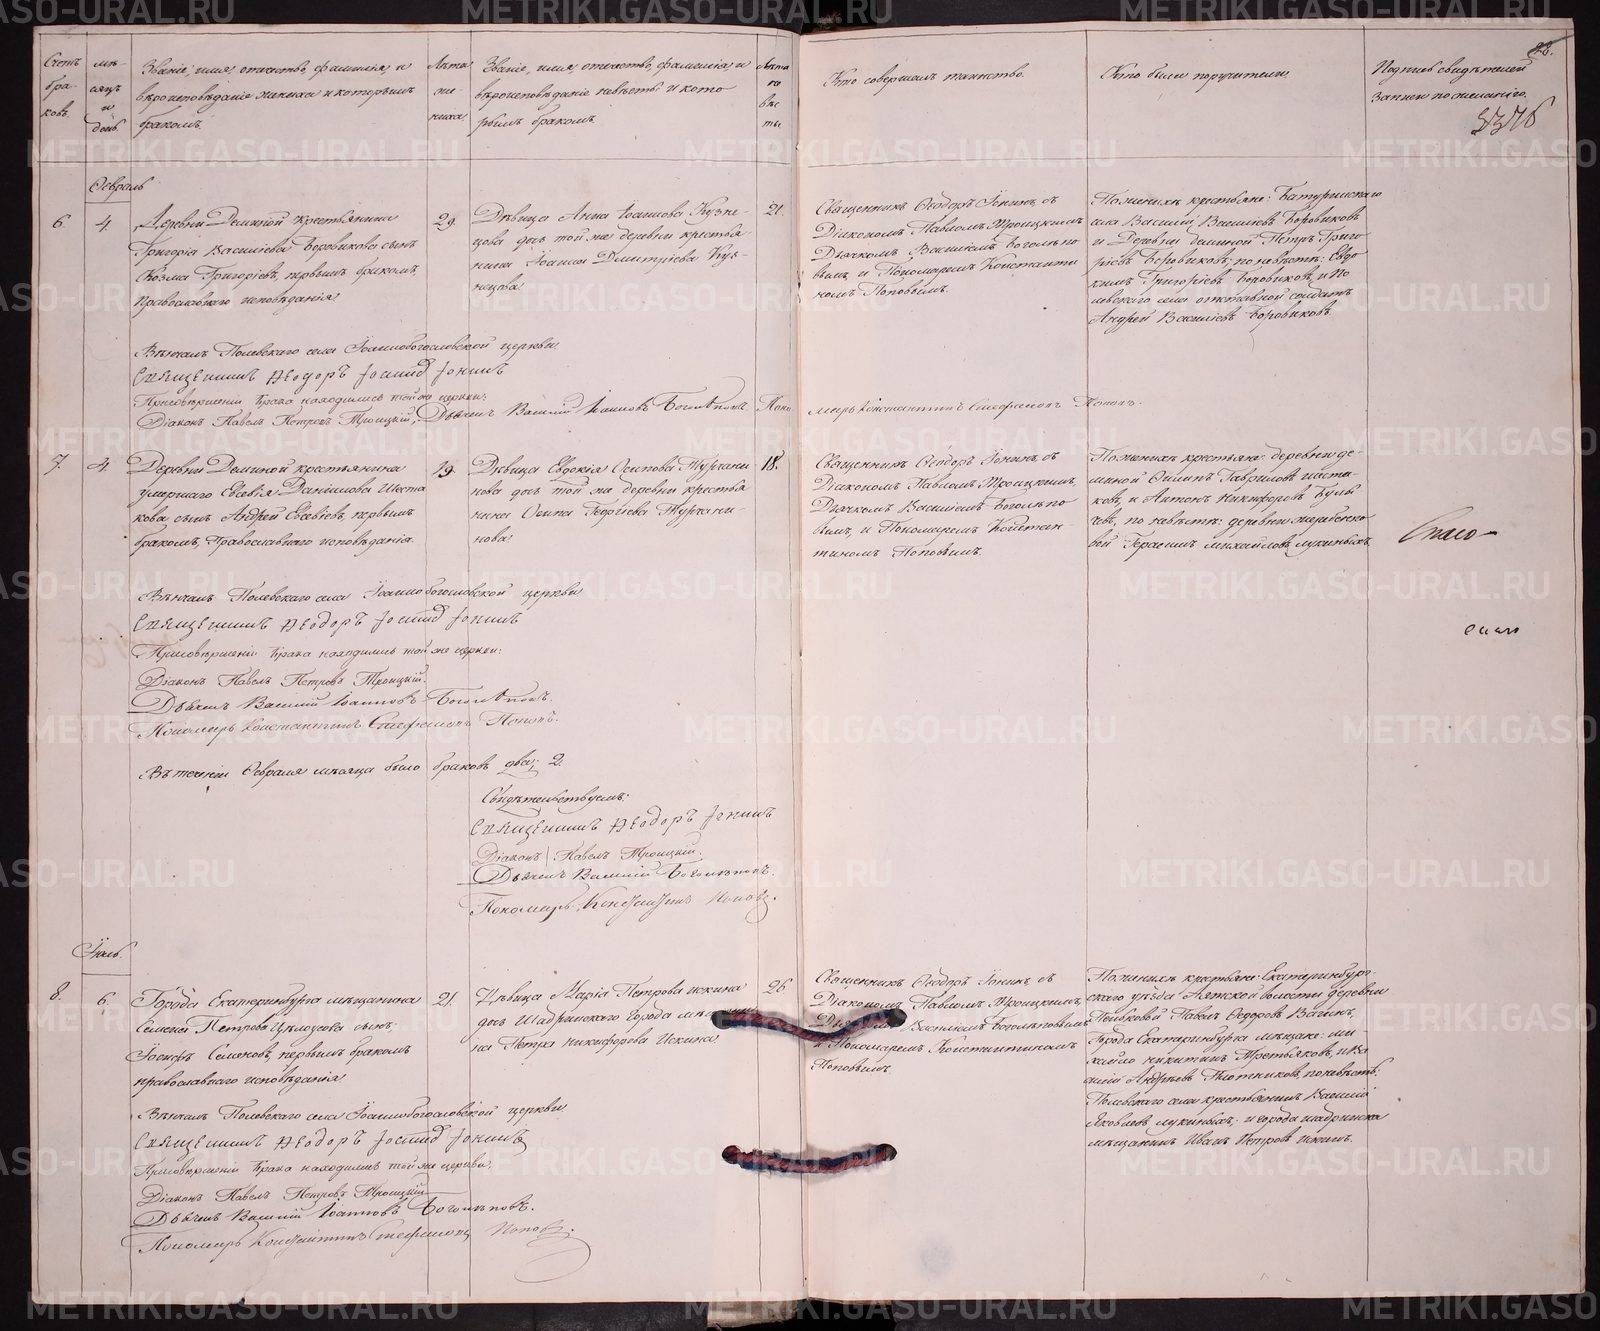 Счетъ бра- ковъ.
мѣ- сяцъ и день
Званіе, имя, отчество, фамилія, и
вѣроисповѣданіе жениха и которымъ
бракомъ.
Лѣта же- ниха
Званіе, имя, отчество, фамилія и
вѣроисповѣданіе невѣсты и кото
рымъ бракомъ.
Лѣта не вѣс ты.
Кто совершалъ таинство.
Кто были поручители.
Подпись свидѣтелей
записи по желанію.
28.
Февраль
6.
4.
Деревни Деминой крестьянина
Григорія Василіева Боровикова сынъ
Козма Григоріевъ, первымъ бракомъ,
православнаго исповѣданія
29.
Дѣвица Анна Іоаннова Кузне-
цова дочь той же деревни крестья
нина Іоанна Димитріева Куз-
нецова
21.
Священникъ Ѳеодоръ Іонинъ съ
Діакономъ Павломъ Троицкимъ
Дьячкомъ Василіемъ Боголѣпо
вымъ и Пономаремъ Константи
номъ Поповымъ.
По женихѣ крестьяне: Батуринскаго
села Василій Василіевъ Боровиковъ
и Деревни Деминой Петръ Григо
ріевъ Боровиковъ; по невѣстѣ: Евдо
кимъ Григоріевъ Боровиковъ, и По
левскаго села отставной солдатъ
Андрей Василіевъ Боровиковъ
Вѣнчалъ Полевскаго села Іоаннобогословской церкви
Священникъ Ѳеодоръ Іонинъ
При совершеніи брака находились той же церкви:
Діаконъ Павелъ Петровъ Троицкій, Дьячекъ Василій Іоанновъ Боголѣповъ. Поно
марь Константинъ Стефановъ Поповъ.
7.
4.
Деревни Деминой крестьянина
умершаго Евсевія Даніилова Шеста
кова сынъ Андрей Евсевіевъ, первымъ
бракомъ, Православнаго исповѣданія
19.
Дѣвица Евдокія Осипова Турчани
нова дочь той же деревни крестья
нина Осипа Георгіева Турчани-
нова
18.
Священникъ Ѳеодоръ Іонинъ съ
Діакономъ Павломъ Троицкимъ,
Дьячкомъ Василіемъ Боголѣпо
вымъ, и Пономаремъ Констан-
тиномъ Поповымъ.
По женихѣ крестьяне: деревни де-
миной Филипъ Гавриловъ шеста
ковъ, и Антонъ Никифоровъ
по невѣстѣ: деревни
Герасимъ михайловъ лукиныхъ
Вѣнчалъ Полевскаго села Іоаннобогословской церкви
Священникъ Ѳеодоръ Іонинъ
При совершеніи брака находились той же церкви:
Діаконъ Павелъ Петровъ Троицкій.
Дьячекъ Василій Іоанновъ Боголѣповъ.
Пономарь Константинъ Стефановъ Поповъ.
Въ теченіи Февраля мѣсяца было браковъ два; 2.
Свидѣтельствуемъ:
Священникъ Ѳеодоръ Іонинъ
Діаконъ Павелъ Троицкій.
Дьячекъ Василій Боголѣповъ.
Пономарь Константинъ Поповъ.
Іюль.
8.
6.
Города Екатеринбурга мѣщанина
Семена Петрова сынъ
Іосифъ Семеновъ, первымъ бракомъ
православнаго исповѣданія
21.
Дѣвица Марія Петрова искина
дочь Шадринскаго города мѣщани
на Петра никифорова Искина
26
Священникъ Ѳеодоръ Іонинъ съ
Діакономъ Павломъ Троицкимъ,
Василіемъ Боголѣповымъ
и Пономаремъ Константиномъ
Поповымъ.
По женихѣ крестьяне: Екатеринбур-
скаго уѣзда волости деревни
Павелъ Ѳедоровъ
Города Екатеринбурга мѣщане: ми
хайло никитинъ Третьяковъ, и Ва
силій Андреевъ Плотниковъ, по невѣстѣ:
Полевскаго села крестьянинъ Василій
Яковлевъ лукиныхъ, и города шадринска
мѣщанинъ Иванъ Петровъ искинъ.
Вѣнчалъ Полевскаго села Іоаннобогословской церкви
Священникъ Ѳеодоръ Іонинъ
При совершеніи брака находились той же церкви:
Діаконъ Павелъ Петровъ Троицкій
Дьячекъ Василій Іоанновъ Боголѣповъ.
Пономарь Константинъ Стефановъ Поповъ.
METRIKI.GASO-URAL.RU